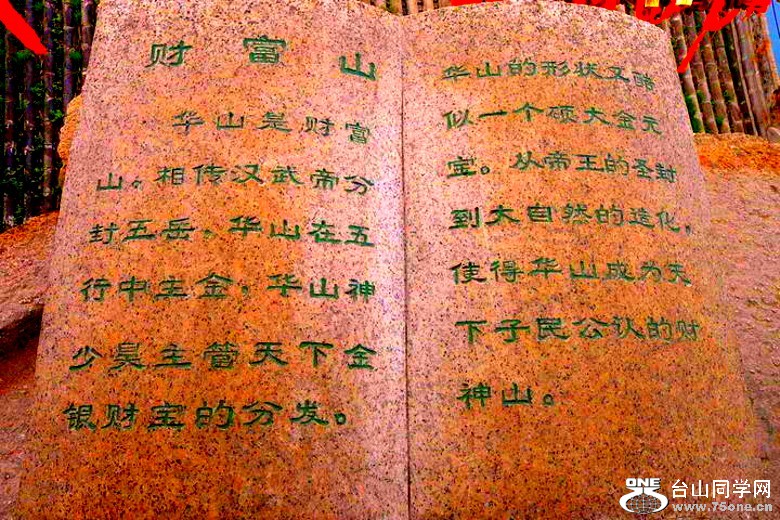 财富山
华山是财富
山。相传汉武帝分
封五岳，华山在五
行中主金，华山神
少昊主管天下金
银财宝的分发。
华山的形状又酷
似一个硕大金元
宝。从帝王的圣封
到大自然的造化，
使得华山成为天
下子民公认的财
神山。
ONE 台山同学网
www.75one.cn